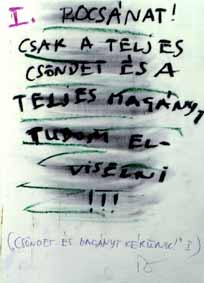 I. BOCSÁNAT!
CSAK A TELJES
CSÖNDET ÉS A
TELJES MAGÁNYT
TUDOM EL-
VISELNI
!!!
(CSÖNDET ÉS MAGÁNYT KÉRÜNK!